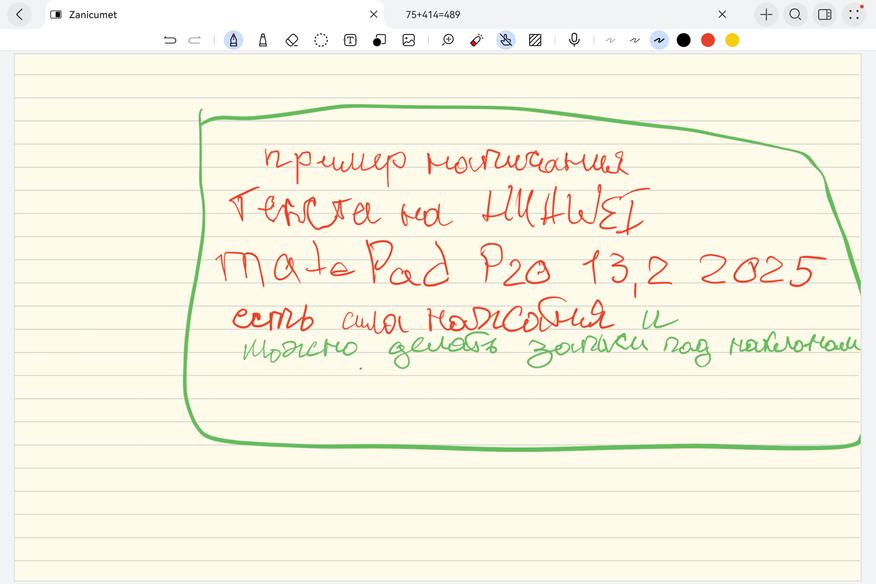 Zanicumet
75+414=489
пример написания
текста на HUAWEI
MatePad Pro 13,2 2025
есть сила нажатия и
можно делать записи под наклоном